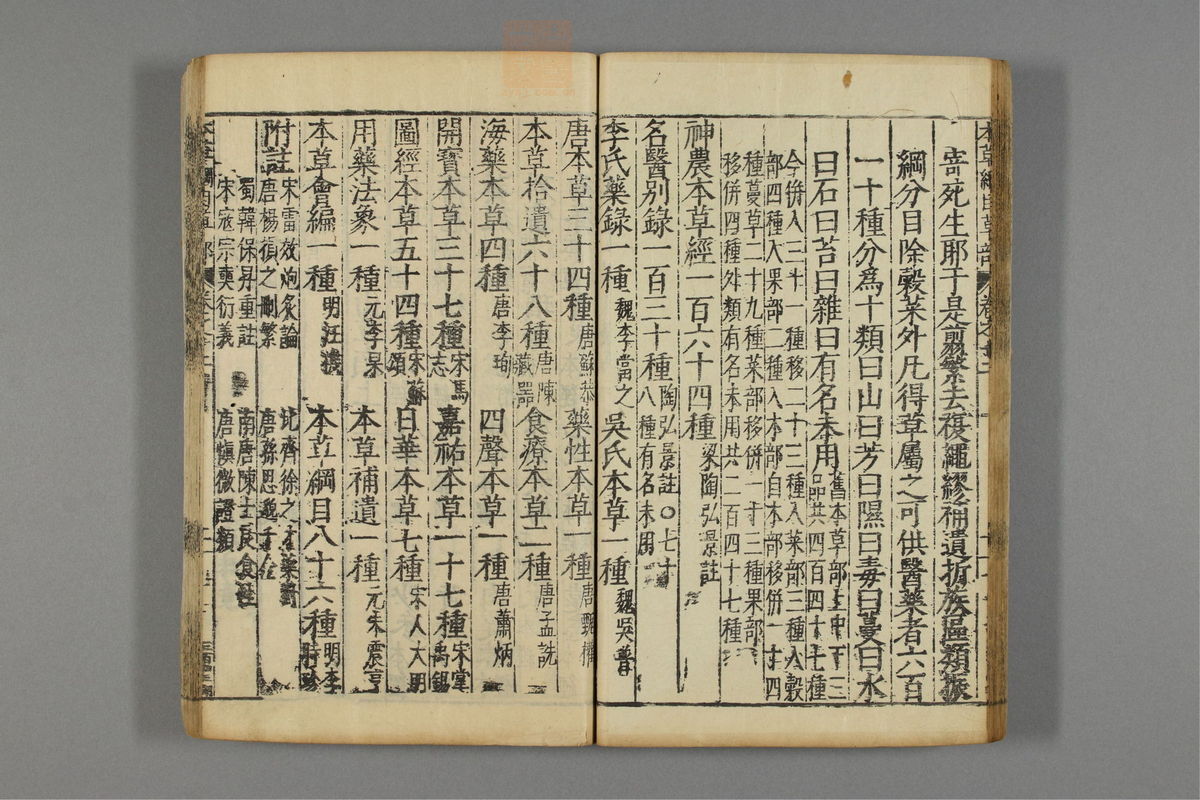 本草綱目草部 卷之十二
奇死生耶于是剪繁去複繩繆補遺析族區類振
綱分目除穀菜外凡得草屬之可供醫藥者六百
一十種分為十類曰山曰芳曰隰曰毒曰蔓曰水
曰石曰苔曰雜曰有名未用
舊本草部上中下三
品共四百四十七種
今併入三十一種移二十三種入菜部三種入穀
部四種入果部二種入木部自木部移併一十四
種蔓草二十九種菜部移併一十三種果部
移併四種外類有名未用共二百四十七種
神農本草經一百六十四種 梁陶弘景註
名醫別錄一百三十種
陶弘景註○七十
八種有名未用
李氏藥錄一種 魏李當之 吳氏本草一種 魏吳普
唐本草三十四種 唐蘇恭 藥性本草一種 唐甄權
本草拾遺六十八種 唐陳藏器 食療本草二種 唐孟詵
海藥本草四種 唐李珣 四聲本草一種 唐蕭炳
開寶本草三十七種 宋馬志 嘉祐本草一十七種 宋掌禹錫
圖經本草五十四種 宋蘇頌 日華本草七種 宋人大明
用藥法象一種 元李杲 本草補遺一種 元朱震亨
本草會編一種 明汪機 本草綱目八十六種 明李時珍
附註
宋雷斅炮炙論 北齊徐之才藥對
唐楊損之刪繁 唐孫思邈千金
蜀韓保昇重註 南唐陳士良食性
宋寇宗奭衍義 唐慎微證類